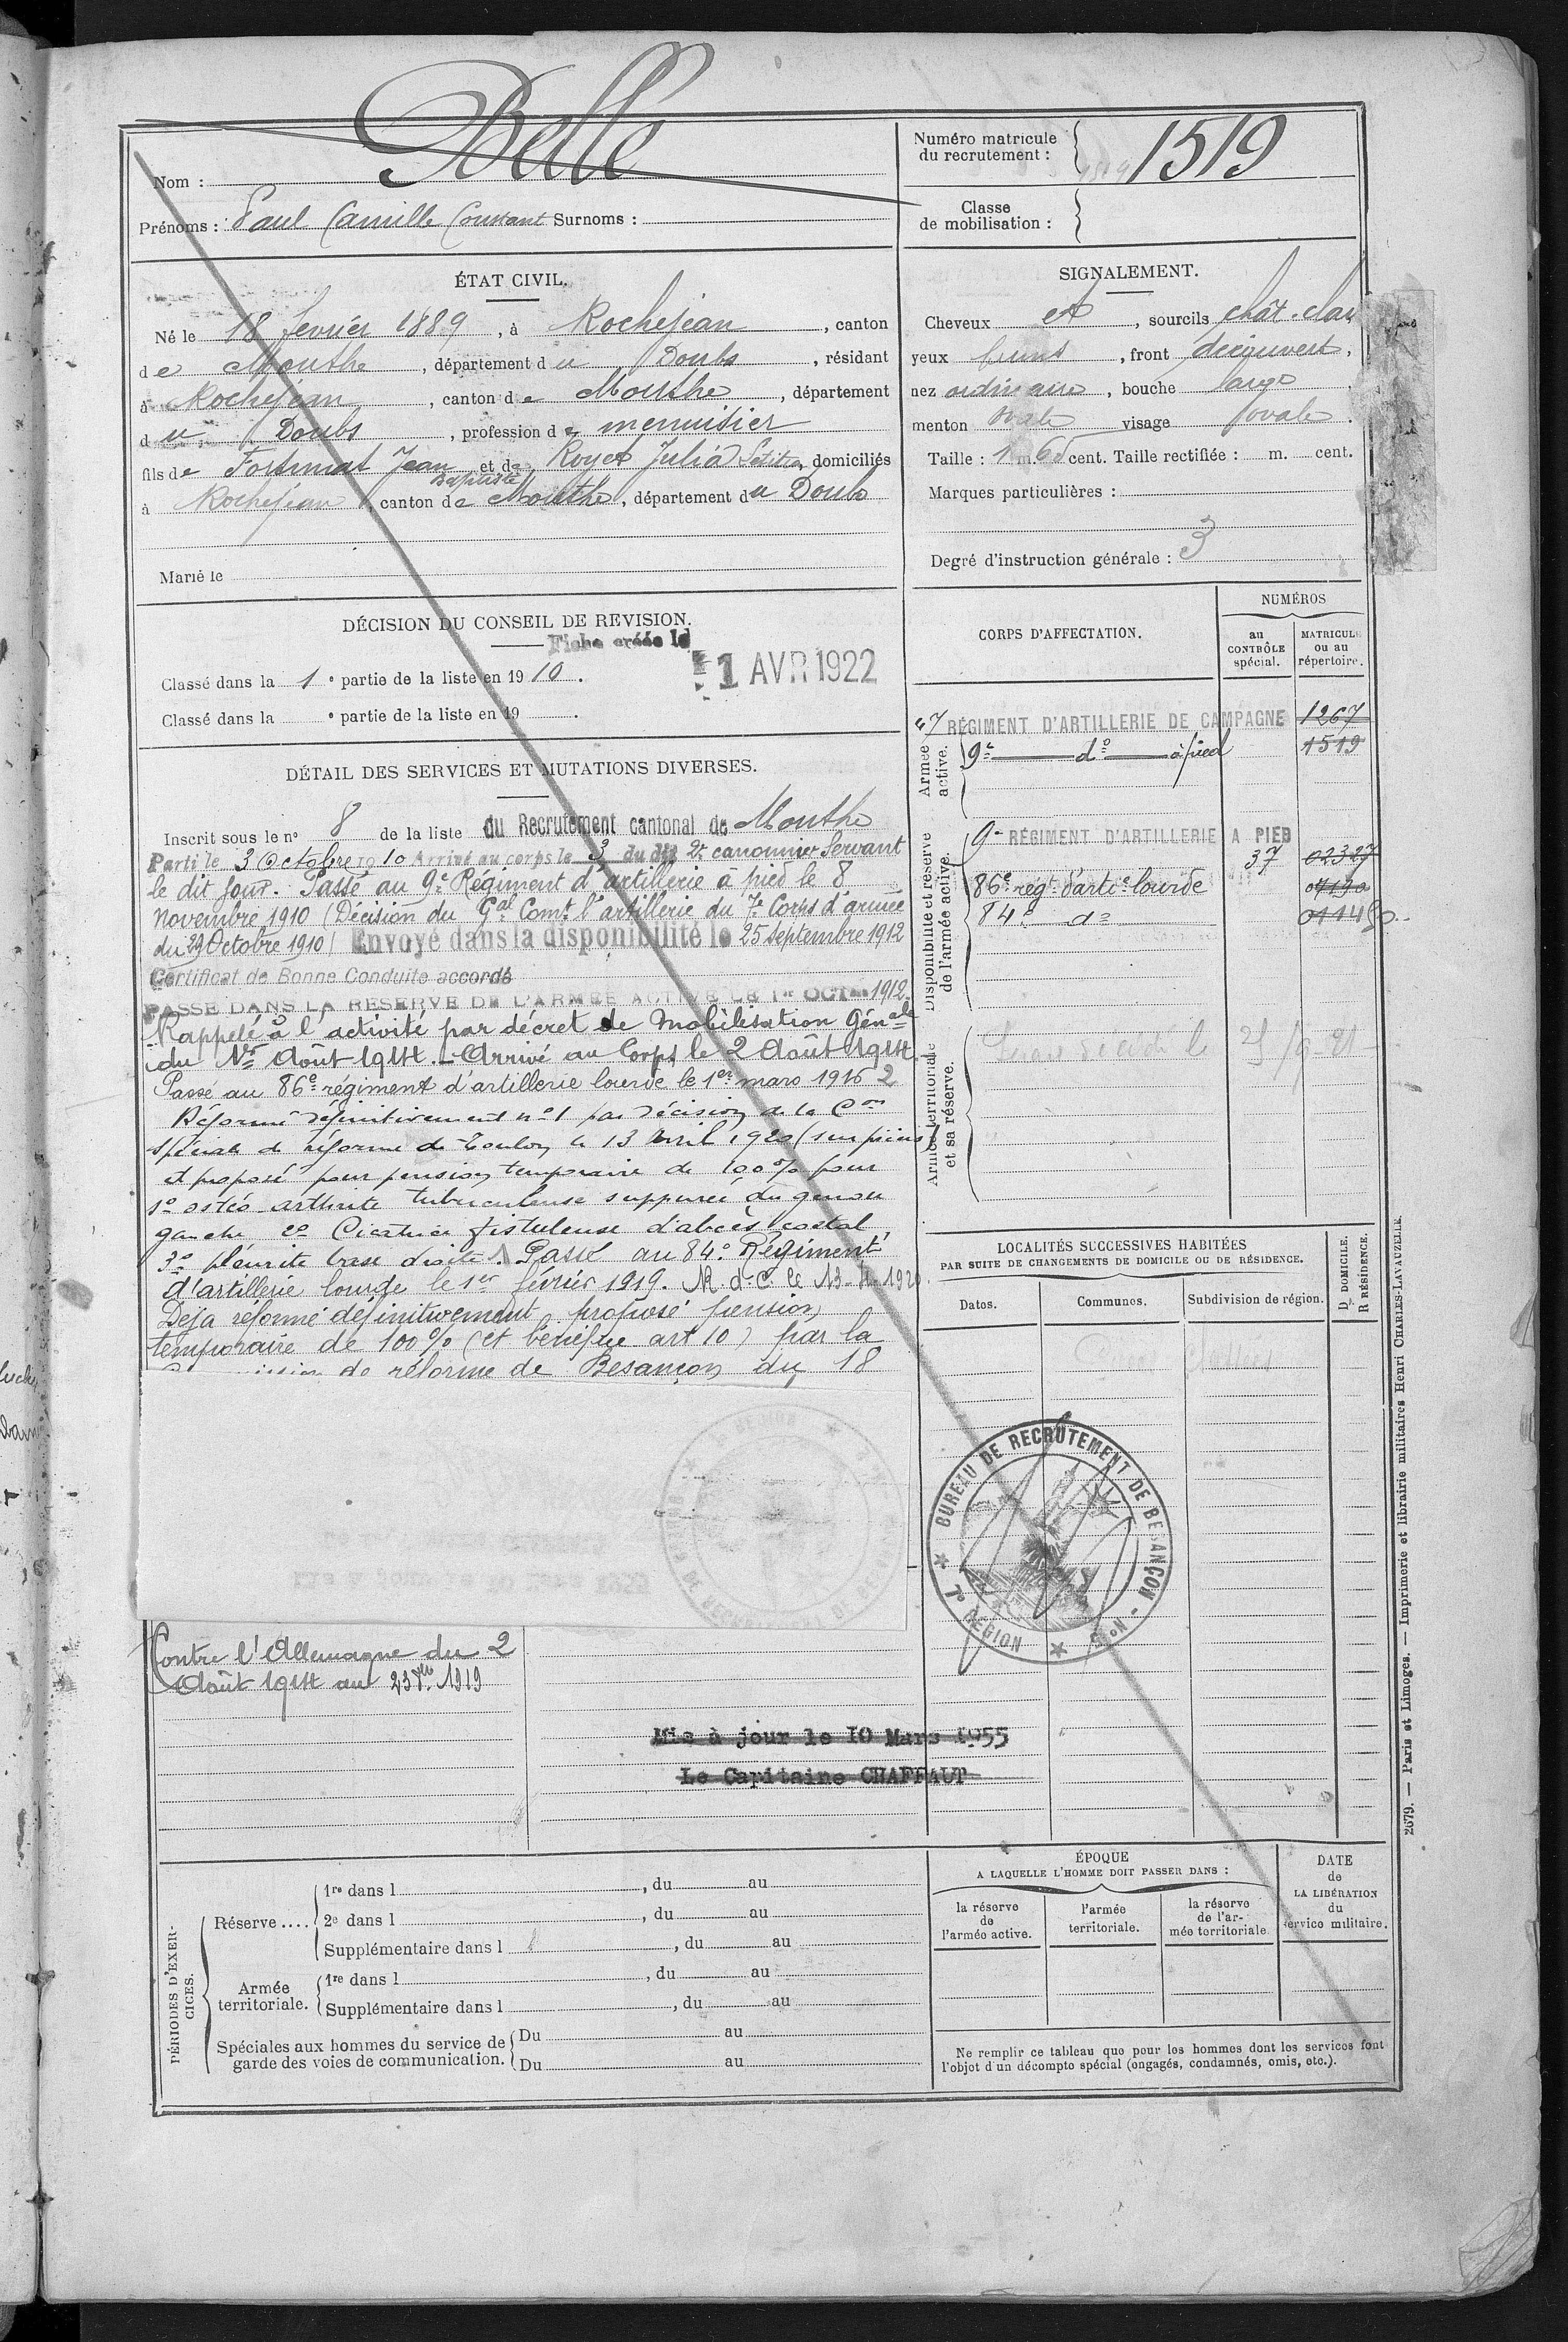 Nom : Belle
Prénoms : Paul Camille Constant Surnoms :
Numéro matricule du recrutement : 1519
Classe de mobilisation :
ÉTAT CIVIL.
Né le 18 février 1889, à Rochejean, canton
de Mouthe, département du Doubs, résidant
à Rochejean, canton de Mouthe, département
du Doubs, profession de menuisier
fils de Fortunat Jean Baptiste et de Royet Julia, domiciliés
à Rochejean, canton de Mouthe, département du Doubs
Marié le
SIGNALEMENT.
Cheveux et, sourcils chât. clair
yeux bruns, front découvert,
nez ordinaire, bouche large
menton visage ovale.
Taille : 1 m. 65 cent. Taille rectifiée : m. cent.
Marques particulières :
Degré d'instruction générale : 3
DÉCISION DU CONSEIL DE REVISION.
Fiche créée le
1 AVR 1922
Classé dans la 1e partie de la liste en 1910.
Classé dans la e partie de la liste en 19 .
CORPS D'AFFECTATION.
NUMÉROS
au CONTRÔLE spécial.
MATRICULE ou au répertoire.
Armée active.
47 RÉGIMENT D'ARTILLERIE DE CAMPAGNE 1267
9e do à pied 1519
Disponibilité et réserve de l'armée active.
9e RÉGIMENT D'ARTILLERIE A PIED 37 02327
86e régt d'artie lourde
84e do
Armée territoriale et sa réserve.
DÉTAIL DES SERVICES ET MUTATIONS DIVERSES.
Inscrit sous le n° 8 de la liste du Recrutement cantonal de Mouthe
Parti le 3 Octobre 1910 Arrivé au corps le 3 du dit 2e canonnier Servant
le dit jour. Passé au 9e Régiment d'artillerie à pied le 8
novembre 1910 (Décision du Gal Comt l'artillerie du 7e Corps d'armée
du 29 Octobre 1910) Envoyé dans la disponibilité le 25 septembre 1912
Certificat de Bonne Conduite accordé
PASSÉ DANS LA RÉSERVE DE L'ARMÉE ACTIVE LE 1er OCT 1912.
Rappelé à l'activité par décret de Mobilisation Génale
du 1er Août 1914. - Arrivé au Corps le 2 Août 1914.
Passé au 86e régiment d'artillerie lourde le 1er mars 1916
Réformé définitivement n° 1 par décision de la Con
spéciale de réforme de Toulon le 13 Avril 1920 (sur pièces)
et proposé pour pension temporaire de 100% pour
1° ostéo arthrite tuberculeuse suppurée du genou
gauche 2° Cicatrice fistuleuse d'abcès costal
3° pleurite base droite. Passé au 84e Régiment
d'artillerie lourde le 1er février 1919. R. d. C. le 13-4-1920.
Déjà réformé définitivement, proposé pension
temporaire de 100% (et bénéfice art 10) par la
de réforme de Besançon du 18
LOCALITÉS SUCCESSIVES HABITÉES
PAR SUITE DE CHANGEMENTS DE DOMICILE OU DE RÉSIDENCE.
Dates.
Communes.
Subdivision de région.
D DOMICILE.
R RÉSIDENCE.
BUREAU DE RECRUTEMENT DE BESANÇON
7e RÉGION
Contre l'Allemagne du 2
Août 1914 au 23 1919
Mis à jour le 10 Mars 1955
Le Capitaine CHAFFAUT
PÉRIODES D'EXERCICES.
Réserve....
1re dans l , du au
2e dans l , du au
Supplémentaire dans l , du au
Armée territoriale.
1re dans l , du au
Supplémentaire dans l , du au
Spéciales aux hommes du service de
garde des voies de communication.
Du au
Du au
ÉPOQUE
A LAQUELLE L'HOMME DOIT PASSER DANS :
la réserve de l'armée active.
l'armée territoriale.
la réserve de l'armée territoriale
DATE de LA LIBÉRATION du service militaire.
Ne remplir ce tableau que pour les hommes dont les services font
l'objet d'un décompte spécial (engagés, condamnés, omis, etc.).
2679. — Paris et Limoges. — Imprimerie et librairie militaires Henri CHARLES-LAVAUZELLE.